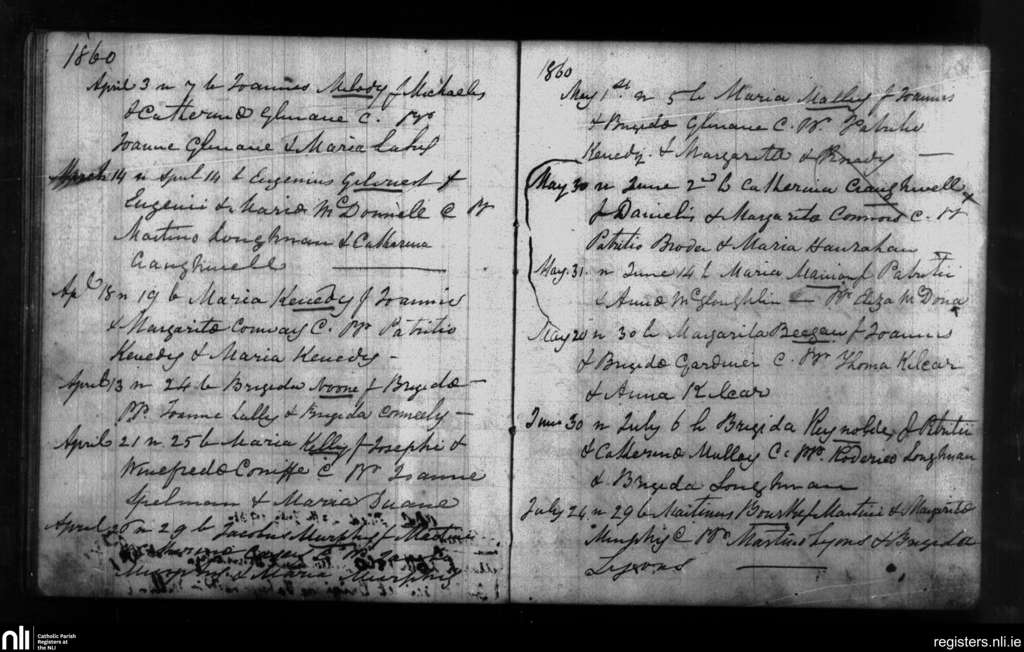 1860
April 3 n 7 b Joannes Melody f Michaelis
& Catherinæ Glenane C. Pps
Joanne Glenane & Maria Lahy
March 14 n April 14 b Eugenius Gilcrest f
Eugenii & Mariæ McDonnell C PP
Martino Loughnan & Catherina
Craughwell
Apl 18 n 19 b Maria Kenedy f Joannis
& Margaritæ Conway C. PP. Patritio
Kenedy & Maria Kenedy -
April 13 n 24 b Brigida Noone f Brigidæ -
PP. Joanne Lally & Brigida Conneely -
April 21 n 25 b Maria Kelly f Josephi &
Winefredæ Coniffe C PP Joanne
Spelman & Maria Duane
April 26 n 29 b Jacobus Murphy f Martini
Murphy & Maria Murphy
1860
May 1st n 5 b Maria Malley f Joannis
& Brigidæ Glenane C. PP. Patritio
Kenedy. & Margarita
May 30 n June 2nd b Catherina Craughwell
f Danielis & Margaritæ Connors C. PP
Patritio Broder & Maria Hanrahan
May. 31. n June 14 b Maria f Patritii
& Annæ McGloughlin C PPs Eliza McDona
May 20 n 30 b Margarita Beegan f Joannis
& Brigidæ Gardiner C. PPs Thoma Kilcar
& Anna Kilcar
June 30 n July 6 b Brigida Reynolds f Patritii
& Catherinæ Mulloy C. PPs. Roderico Loughnan
& Brigida Loughnan
July 24 n 29 b Martinus Bourke f Martini & Margaritæ
Murphy C PPs Martino Lyons & Brigida
Lyons
nli
Catholic Parish
Registers at
the NLI
registers.nli.ie